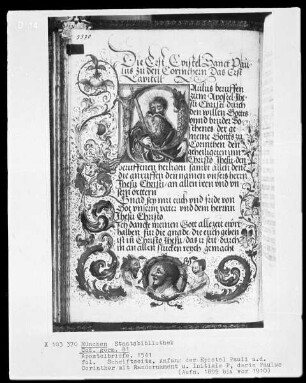 Die Erst Epistel Sanct Pau-
lus zu den Corinthern Das Erst
Capittel
Paulus beruffen
zum Apostel Jhe-
su Christi durch
den willen Gottes
vnnd bruder So-
sthenes der ge-
meine Gottes zu
Corinthen den
geheiligeten inn
Christo Jhesu den
beruffenen heiligen sambt allen denen
die anruffen den namen vnsers herrn
Jhesu Christi an allen iren vnd vn-
sern örttern
Gnad sey mit euch vnd fride von
Got vnserm vater vnd dem herrnn
Jhesu Christo
Ich dancke meinem Got allezeit ewrt-
halben für die gnade die euch geben
ist in Christo Jhesu das ir seit durch
in an allen stucken reych gemacht
X 103 370 München Staatsbibliothek
Apostelbriefe, 1541
Schriftseite, Anfang der Epistel Pauli a.d.
Corinther mit Randornament u. Initiale P, darin Paulus
(Aufn. 1895 bis vor 1910)